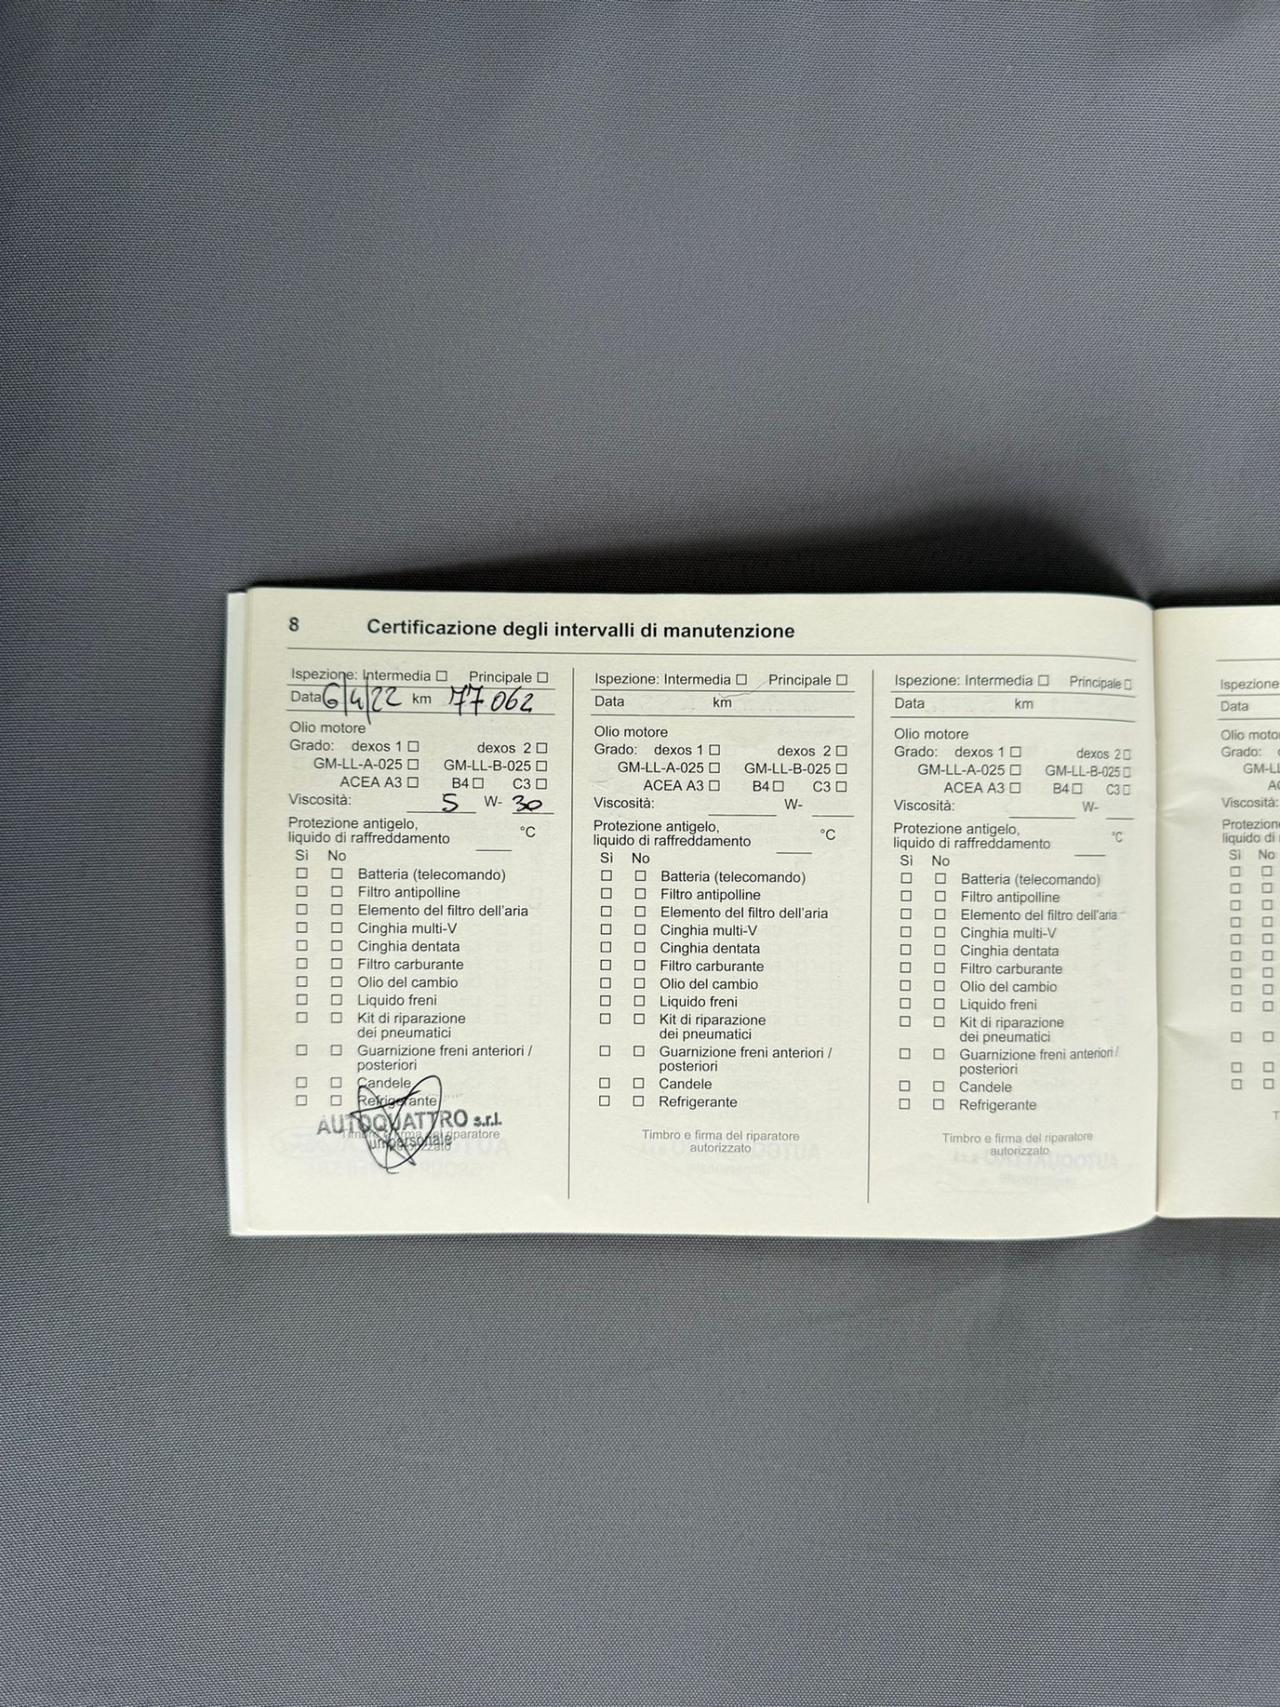 8 Certificazione degli intervalli di manutenzione
Ispezione: Intermedia ☐ Principale ☐
Data 6/4/22 km 77 062
Olio motore
Grado: dexos 1 ☐ dexos 2 ☐
GM-LL-A-025 ☐ GM-LL-B-025 ☐
ACEA A3 ☐ B4 ☐ C3 ☐
Viscosità: 5 W- 30
Protezione antigelo,
liquido di raffreddamento °C
Sì No
☐ ☐ Batteria (telecomando)
☐ ☐ Filtro antipolline
☐ ☐ Elemento del filtro dell'aria
☐ ☐ Cinghia multi-V
☐ ☐ Cinghia dentata
☐ ☐ Filtro carburante
☐ ☐ Olio del cambio
☐ ☐ Liquido freni
☐ ☐ Kit di riparazione
dei pneumatici
☐ ☐ Guarnizione freni anteriori /
posteriori
☐ ☐ Candele
☐ ☐ Refrigerante
AUTOQUATTRO s.r.l.
Timbro e firma del riparatore
unipersonale
autorizzato
Ispezione: Intermedia ☐ Principale ☐
Data km
Olio motore
Grado: dexos 1 ☐ dexos 2 ☐
GM-LL-A-025 ☐ GM-LL-B-025 ☐
ACEA A3 ☐ B4 ☐ C3 ☐
Viscosità: W-
Protezione antigelo,
liquido di raffreddamento °C
Sì No
☐ ☐ Batteria (telecomando)
☐ ☐ Filtro antipolline
☐ ☐ Elemento del filtro dell'aria
☐ ☐ Cinghia multi-V
☐ ☐ Cinghia dentata
☐ ☐ Filtro carburante
☐ ☐ Olio del cambio
☐ ☐ Liquido freni
☐ ☐ Kit di riparazione
dei pneumatici
☐ ☐ Guarnizione freni anteriori /
posteriori
☐ ☐ Candele
☐ ☐ Refrigerante
Timbro e firma del riparatore
autorizzato
Ispezione: Intermedia ☐ Principale ☐
Data km
Olio motore
Grado: dexos 1 ☐ dexos 2 ☐
GM-LL-A-025 ☐ GM-LL-B-025 ☐
ACEA A3 ☐ B4 ☐ C3 ☐
Viscosità: W-
Protezione antigelo,
liquido di raffreddamento °C
Sì No
☐ ☐ Batteria (telecomando)
☐ ☐ Filtro antipolline
☐ ☐ Elemento del filtro dell'aria
☐ ☐ Cinghia multi-V
☐ ☐ Cinghia dentata
☐ ☐ Filtro carburante
☐ ☐ Olio del cambio
☐ ☐ Liquido freni
☐ ☐ Kit di riparazione
dei pneumatici
☐ ☐ Guarnizione freni anteriori /
posteriori
☐ ☐ Candele
☐ ☐ Refrigerante
Timbro e firma del riparatore
autorizzato
Ispezione
Data
Olio moto
Grado:
GM-LL
Viscosità:
Protezion
liquido di
Sì No